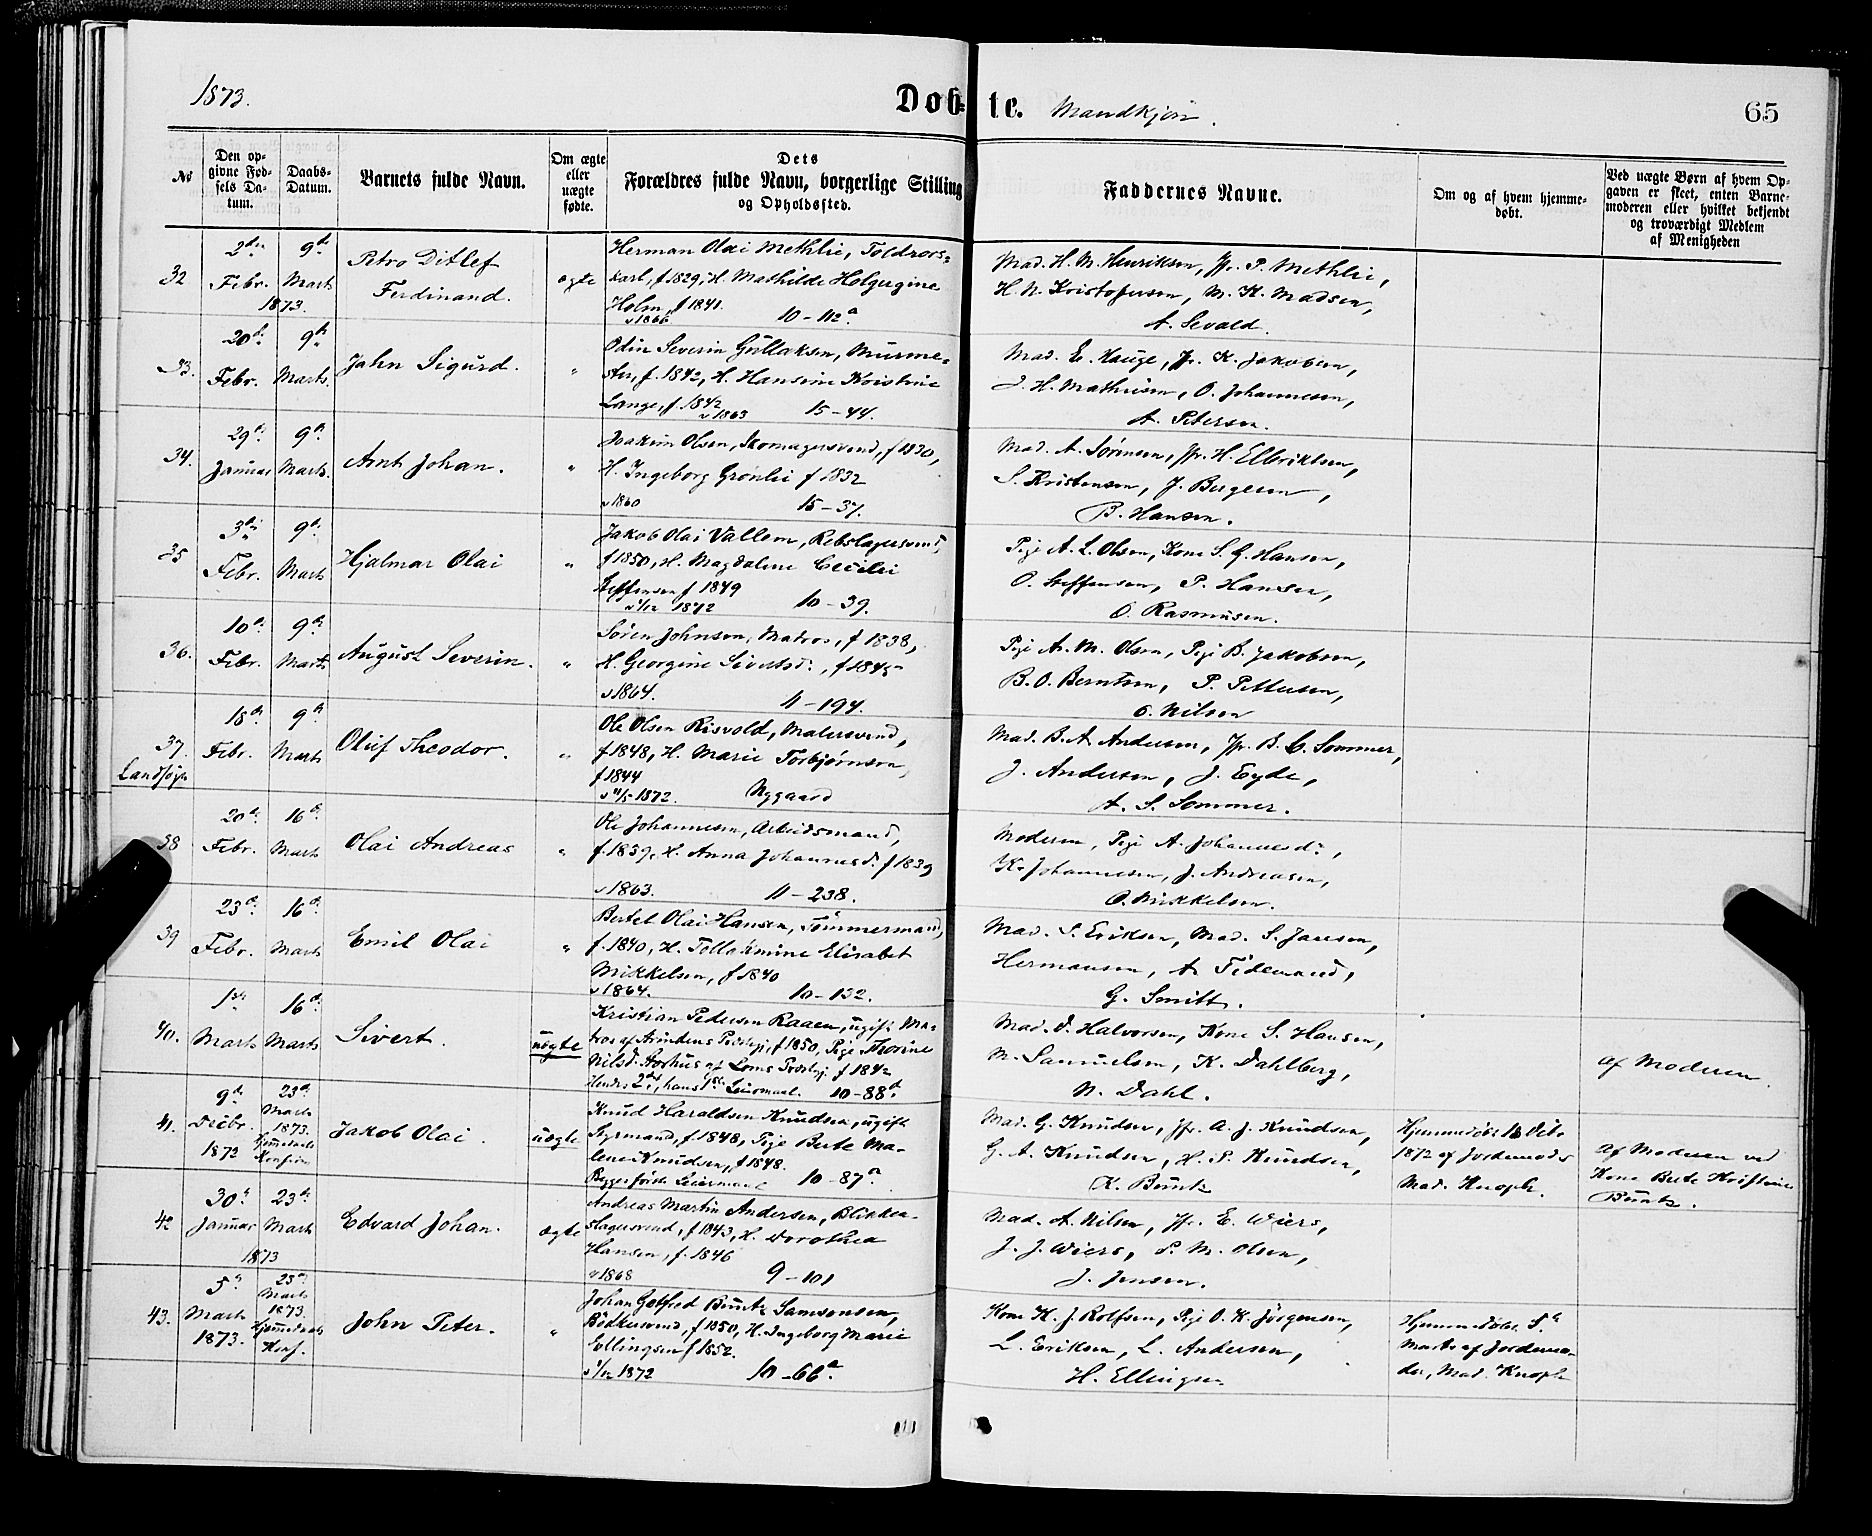 1873.
Døb-te. Mandkjøn.
65
No
Den opgivne Fødsels Datum.
Daabs-Datum.
Barnets fulde Navn.
Om ægte eller uægte fødte.
Dets Forældres fulde Navn, borgerlige Stilling og Opholdssted.
Faddernes Navne.
Om og af hvem hjemmedøbt.
Ved uægte Børn af hvem Opgaven er skeet, enten Barnemoderen eller hvilket bekjendt og troværdigt Medlem af Menigheden
32
2den Febr. 1873.
9de Marts
Petro Ditlef
Ferdinand.
ægte
Herman Olai Methlie, Toldroers-
karl, f 1829, H. Mathilde Holgergine
Holm, f 1841.
v 1866 10-112a.
Mad. H. M. Henriksen, Jfr. P. Methlie,
H. N. Kristofersen, M. K. Madsen,
A. Sevald.
33.
20de Febr.
9de Marts.
Jahn Sigurd.
"
Odin Severin Gullaksen, Murme-
ster, f. 1842, H. Hansine Kristine
Lange, f. 1842
v 1863 15-44.
Mad. E. Hauge, Jfr. K. Jakobsen,
J. H. Mathisen, O. Johannesen,
A. Petersen.
34.
29de Januar
9de Marts.
Arnt Johan.
"
Joakim Olsen, Skomagersvend, f 1830,
H. Ingeborg Grønlie f 1832
v 1860 15-37.
Mad. A. Sørensen, Jfr. H. Elleriksen,
S. Kristensen, J. Bergesen,
B. Hansen.
35
3die Febr.
9de Marts
Hjalmar Olai
"
Jakob Olai Vallem, Rebslagersvend,
f 1850, H. Magdalene Cecilie
Steffensen f 1849
v 1/12 1872 10-39.
Pige A. L. Olsen, Kone S. G. Hansen,
O. Steffensen, P. Hansen,
O. Rasmusen.
36.
10de Febr.
9de Marts
August Severin.
"
Søren Johnsen, Matros, f 1838,
H. Georgine Sivertsd., f 1845
v 1864. 11-194.
Pige A. M. Olsen, Pige B. Jakobsen,
B. O. Berntsen, P. Pettersen,
O. Nilsen
37.
Landsogn
18de Febr.
9de Marts
Oluf Theodor.
"
Ole Olsen Risvold, Malersvend,
f 1848, H. Marie Torbjørnsen,
f 1844
v 11/5 1872. Nygaard
Mad. B. A. Andersen, Jfr. B. C. Sommer,
J. Andersen, J. Eyde,
A. S. Sommer.
38
20de Febr.
16de Marts
Olai Andreas
"
Ole Johannesen, Arbeidsmand,
f. 1839, H. Anna Johannesd. f 1839
v 1863. 11-238.
Moderen, Pige A. Johannesd.,
K. Johannesen, J. Andreasen,
O. Mikkelsen.
39
23de Febr.
16de Marts
Emil Olai
"
Bertel Olai Hansen, Tømmermand,
f. 1840, H. Tollakmine Elisabet
Mikkelsen, f 1840
v 1864. 10-132.
Mad. S. Eriksen, Mad. S. Jansen,
Hermansen, A. Tidemand,
G. Smitt.
40.
1ste Marts
16de Marts
Sivert.
uægte
Kristian Pedersen Raaen, ugift Ma-
tros af Arendens Prstgj, f 1850, Pige Thorine
Nilsd. Aarhus af Loms Prstgj. f 1842
Hendes 2det, hans 1ste Leiermaal. 10-88d
Mad. D. Halvorsen, Kone S. Hansen,
M. Samuelsen, K. Dahlberg,
N. Dahl.
af Moderen.
41.
9de Decbr. 1872
23de Marts 1873. Hjemmedaab Konfirm
Jakob Olai.
uægte
Knud Haraldsen Knudsen, ugift
Styrmand, f. 1848, Pige Berte Ma-
lene Knudsen, f 1848.
Begges første Leiermaal 10-87a.
Mad. G. Knudsen, Jfr. A. J. Knudsen,
G. A. Knudsen, H. P. Knudsen,
K. Buntz
Hjemmedøbt 18 Dcbr
1872 af Jordemoder
Mad. Knoph.
af Moderen ved
Kone Berte Kristine
Buntz.
42
30te Januar 1873
23de Marts
Edvard Johan.
ægte
Andreas Martin Andersen, Blikken-
slagersvend, f 1843, H. Dorothea
Hansen, f. 1846
v 1868 9-101
Mad. A. Nilsen, Jfr. E. Wiers,
J. J. Wiers, S. M. Olsen,
J. Jensen.
43.
5te Marts 1873.
23de Marts 1873. Hjemmedaab Konf.
John Peter.
"
Johan Gotfred Buntz Samsonsen,
Bødkersvend, f 1850, H. Ingeborg Marie
Ellingsen f 1852.
v 1/12 1872 10-66a.
Kone K. J. Rolfsen, Pige O. K. Jørgensen,
L. Eriksen, L. Andersen,
H. Ellingsen
Hjemmedøbt 5te
Marts af Jordemo-
der, Mad. Knoph